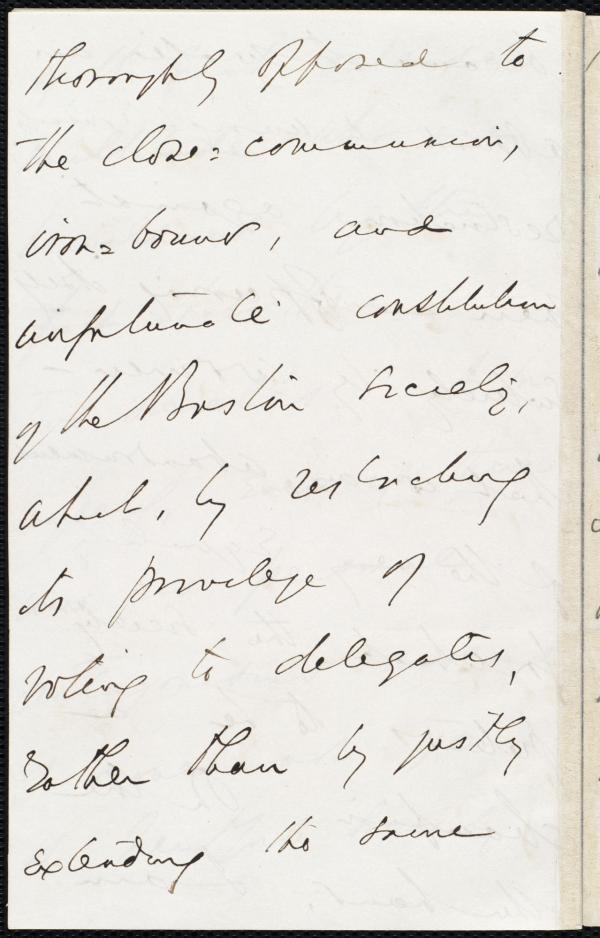 thoroughly opposed to
the close=communion,
iron=bound, and
unfortunate constitution
of the Boston Society,
which, by restricting
its privilege of
voting to delegates,
rather than by justly
extending the same